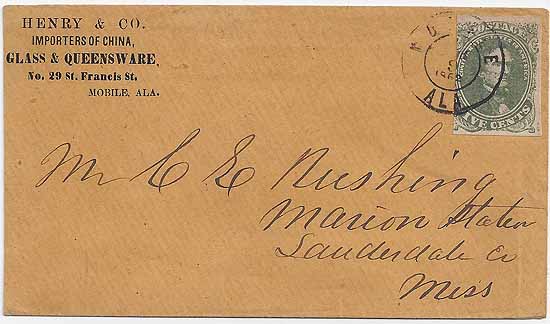 HENRY & CO.
IMPORTERS OF CHINA,
GLASS & QUEENSWARE,
No. 29 St. Francis St.
MOBILE, ALA.
ALA
VE CENTS
Mr C E Rushing
Marion Station
Lauderdale Co
Miss